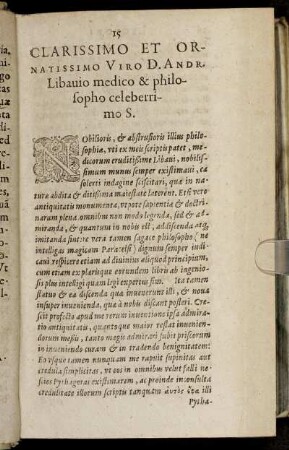 15
CLARISSIMO ET OR-
NATISSIMO VIRO D. ANDR.
Libauio medico & philo-
sopho celeberri-
mo S.
NObilioris, & abstrusioris illius philo-
sophiæ, vti ex meis scriptis patet, me-
dicorum eruditißime Libaui, nobilis-
simum munus semper existimaui, ca
solerti indagine sciscitari, quæ in na-
tura abdita & ditißima maiestate laterent. Etsi vero
antiquitatis monumenta, vt pote sapientia & doctri-
naram plena, omnibus non modo legenda, sed & ad-
miranda, & quantum in nobis est, addiscenda atq;
imitanda sint: vera tamen sagace philosopho (ne
intelligas magicam Paracelsi) dignum semper indi-
caui respicere etiam ad diuinius aliquod principium,
cum etiam ex plurique eorundem libris ab ingenio-
sis plus intelligi quam legi expertus sim. Ita tamen
status & ea discenda qua inuenerunt illi, & noua
insuper inuenienda, quæ à nobis discant posteri. Cres-
cit profecto apud me rerum inuentioni ipsa admi-
ratio antiquitatis, quantoque maior restat inuenien-
dorum messis, tanto magis admirari subit priscorum
in inueniendo curam & in tradendo benignitatem:
Eo vsque tamen nunquam me rapuit supinitas aut
credula simplicitas, vt eos in omnibus velut falli ne-
scios Pythagoræos existimarem, ac proinde inconsulta
credulitate illorum scriptis tanquam
Pytha-